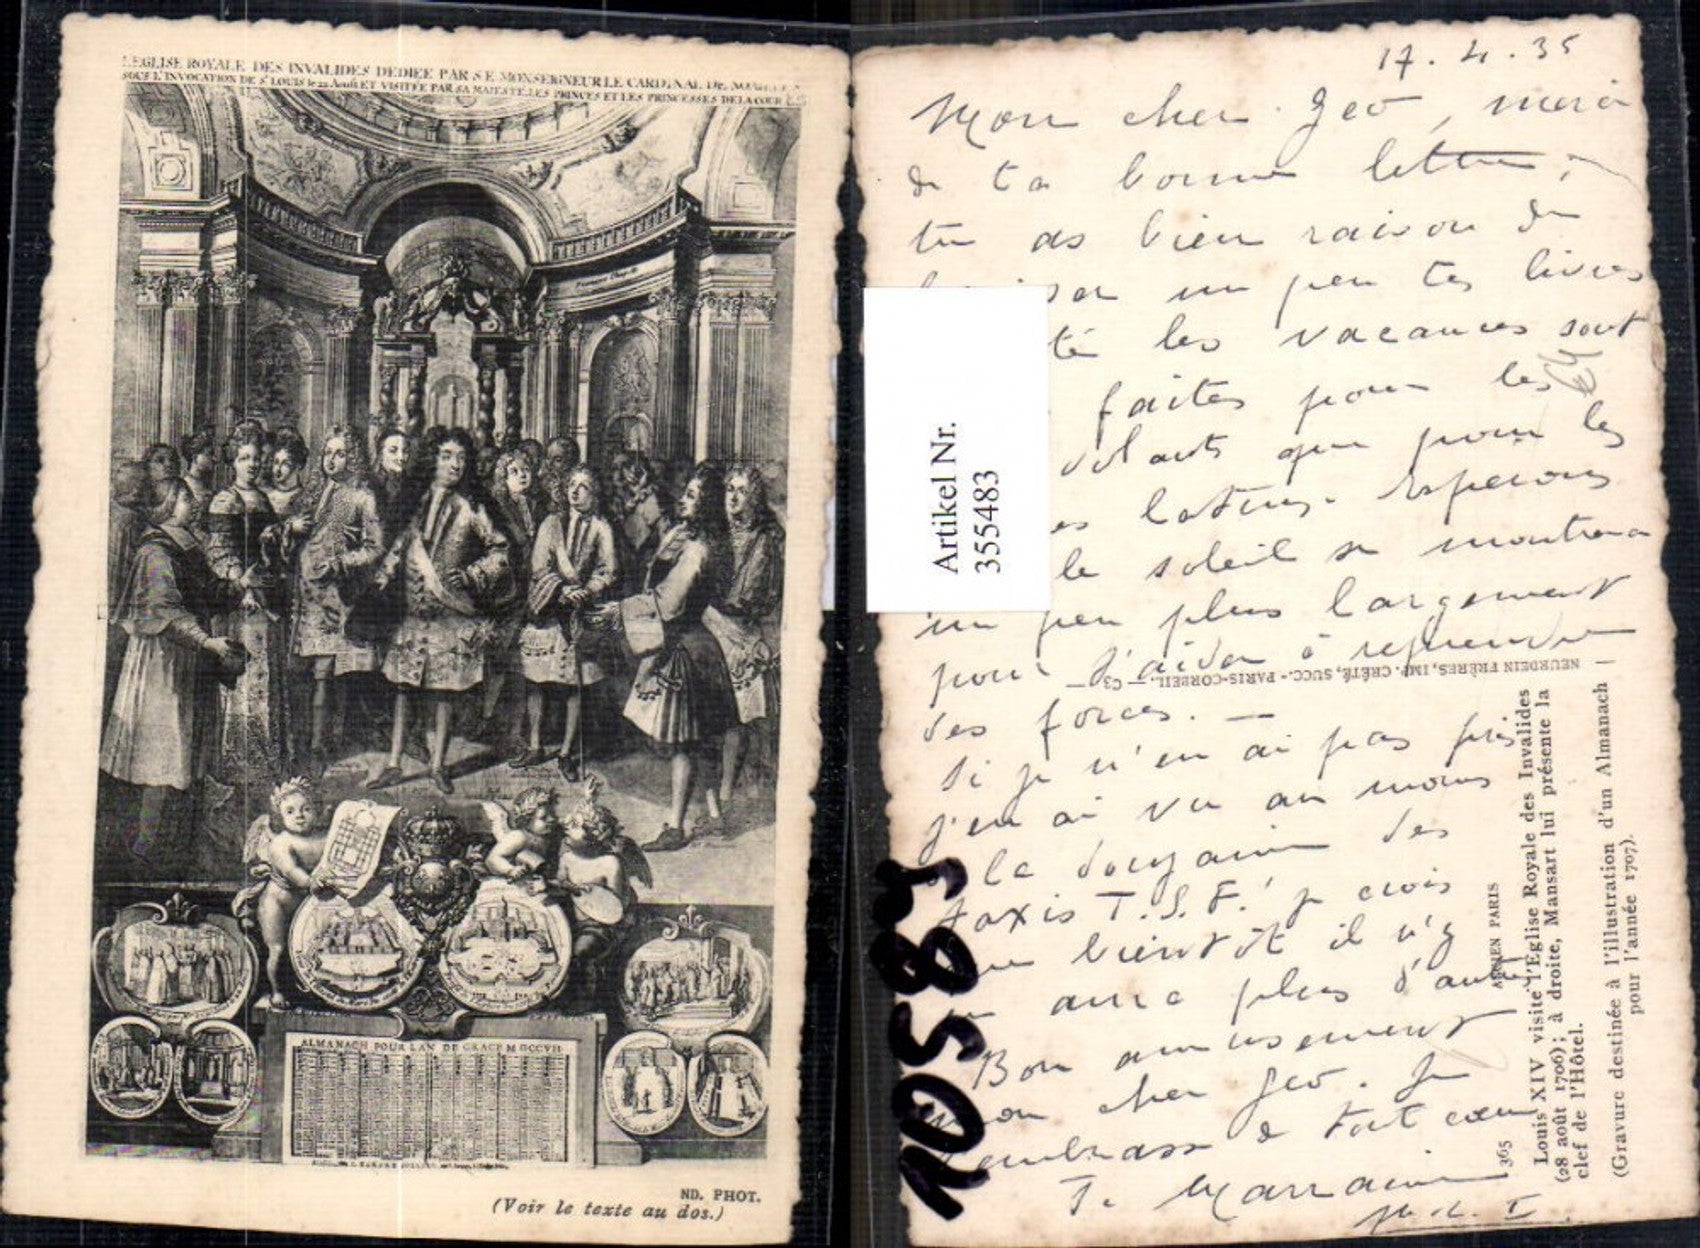 L'EGLISE ROYALE DES INVALIDES DEDIEE PAR S E MONSEIGNEUR LE CARDINAL DE
SOUS L'INVOCATION DE St LOUIS le 22 Aoust ET VISITÉE PAR SA MAJESTE, LES PRINCES ET LES PRINCESSES DE LA COUR
ALMANACH POUR LAN DE GRACE M DCCVII
ND. PHOT.
(Voir le texte au dos.)
17.4.35
Mon cher Géo, merci
de ta bonne lettre,
tu as bien raison de
un peu tes livres
té les vacances sont
faites pour les
que pour les
es latines. Espérons
le soleil se montrera
un peu plus largement
pour t'aider à reprendre
des forces. —
Si je n'en ai pas pris
j'en ai vu au moins
à la douzaine des
taxis T.S.F.! je crois
que bientôt il n'y
en aura plus d'autres
Bon amusement
mon cher Géo. Je
t'embrasse de tout cœur
Ta Marraine
Artikel Nr.
355483
10583
NEURDEIN FRÈRES, IMP. CRÉTÉ, SUCC. - PARIS-CORBEIL. — C3 —
ANCIEN PARIS
365
Louis XIV visite l'Eglise Royale des Invalides
(28 août 1706); à droite, Mansart lui présente la
clef de l'Hôtel.
(Gravure destinée à l'illustration d'un Almanach
pour l'année 1707).